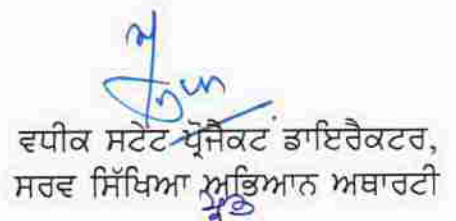 ਵਧੀਕ ਸਟੇਟ ਪ੍ਰੋਜੈਕਟ ਡਾਇਰੈਕਟਰ,
ਸਰਵ ਸਿੱਖਿਆ ਅਭਿਆਨ ਅਥਾਰਟੀ